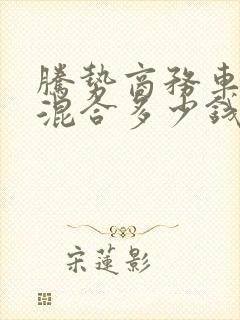 騰勢商務車
混合多少錢
宋蓮影